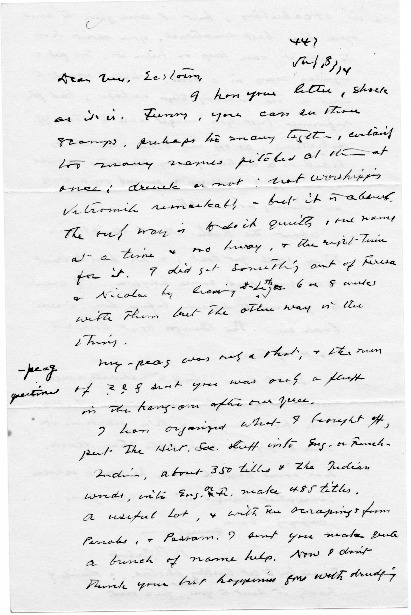 447
Dear Mrs. Eckstorm,
I have your letter, shock
as it is. Funny, you can see those
scamps, perhaps too many together, certainly
too many names pitched at them at
once; drunk or not; not worshipping
Vetromile remarkably - but it is about
the only way is to do it quietly, one name
at a time & no hurry, & the right time
for it. I did get something out of Teresa
& Nicolar by having 6 or 8 weeks
with them but the other way is the
thing.
-peag
question
my -peag was only a shot, & the run
of ? ? I sent you was only a fluff
in the hang-over after our
I have organized what I brought off,
put the Hist. Soc. stuff into Eng. or French-
Indian, about 350 titles & the Indian
words, with Eng. or Fr. make 485 titles.
A useful lot, & with the scrapings from
Penobs. & Passam. I sent you makes quite
a bunch of name help. Now I don't
think your but happiness goes with drudging